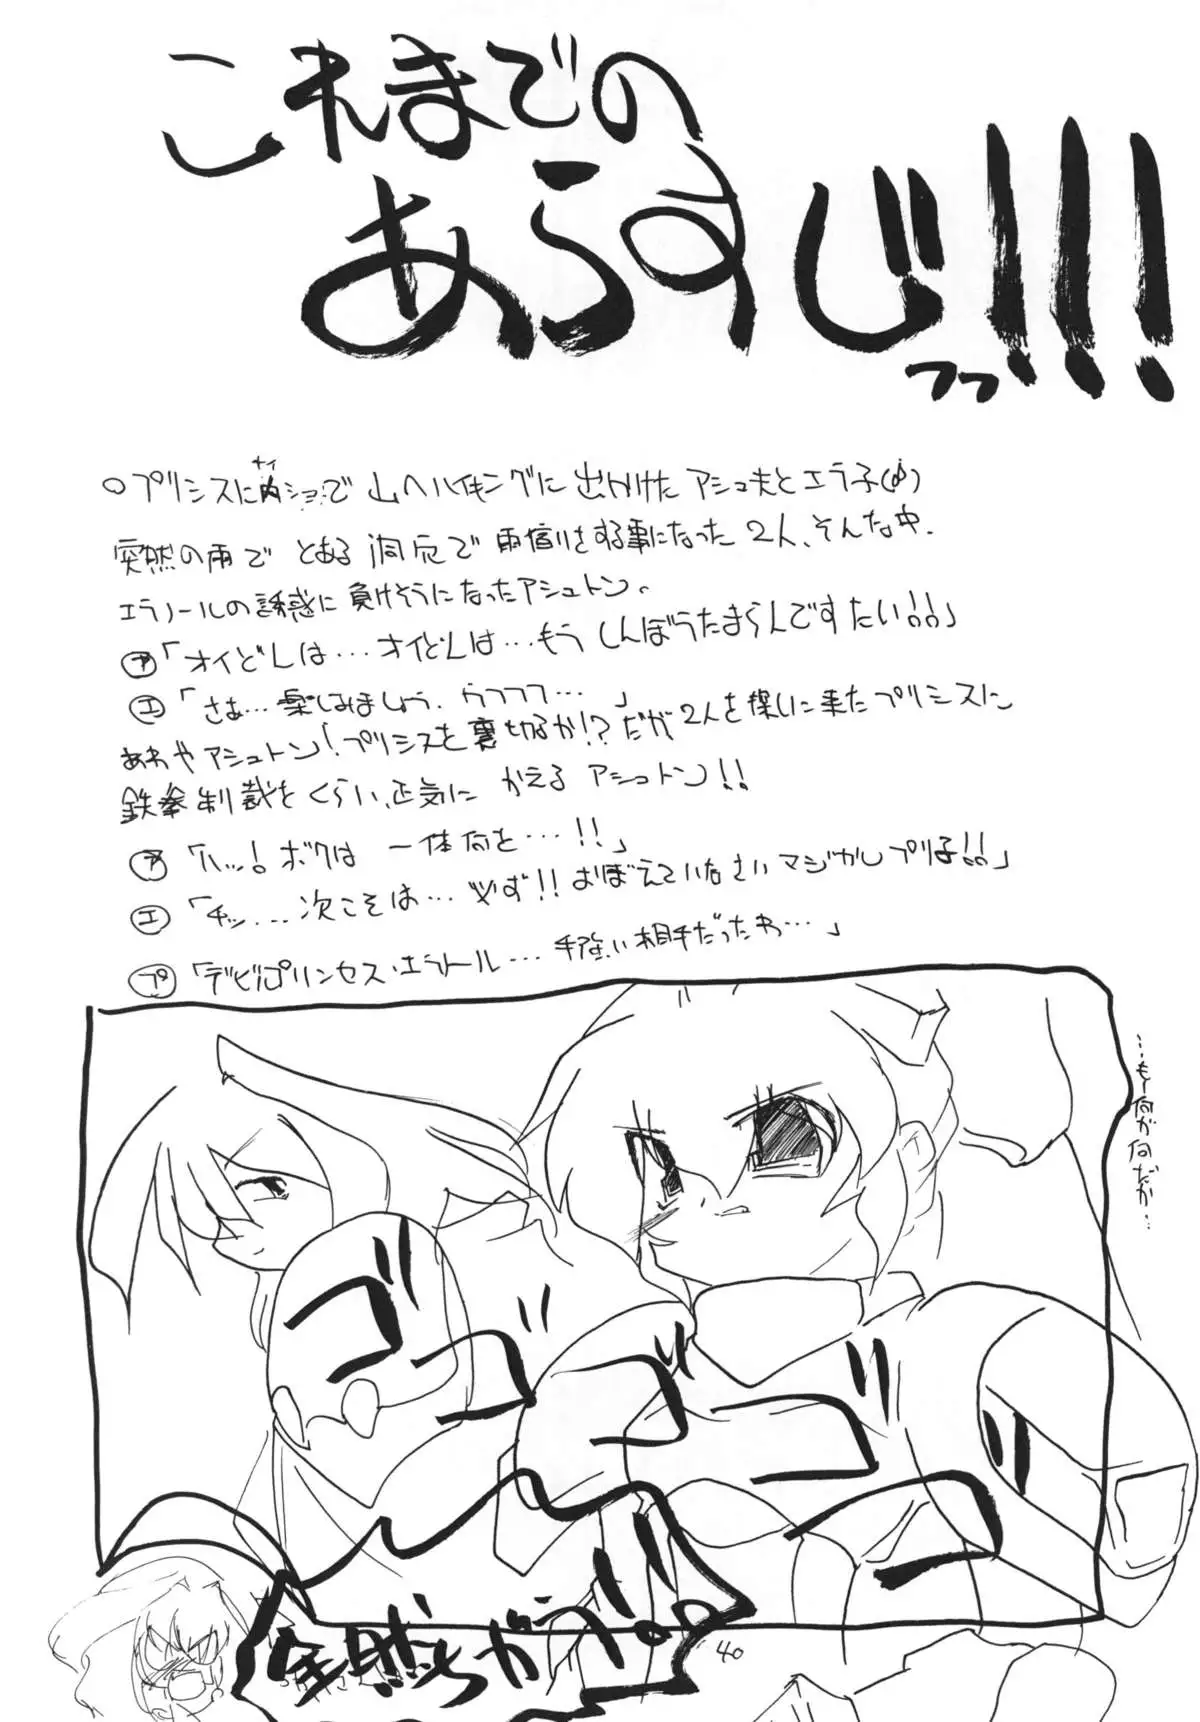 これまでの
あらすじっっ!!!
○プリシスに内ショで 山へハイキングに出かけたアシュ夫とエラ子(♂)
ナイ
突然の雨で とある 洞穴で 雨宿りをする事になった 2人、そんな中、
エラノールの誘惑に負けそうになったアシュトン。
ア「オイどんは…オイどんは…もうしんぼうたまらんですたい!!」
エ「さぁ…楽しみましょう。ウフフフ…」
あわやアシュトン!プリシスを裏切るか!?だが2人を探しに来たプリシスに
鉄拳制裁をくらい、正気に かえる アシュトン!!
ア「ハッ!ボクは 一体何を…!!」
エ「チッ...次こそは…必ず!!おぼえていなさいマジカルプリ子!!」
プ「デビルプリンセス・エラノール…手強い相手だったわ…」
…もー何が何だか…
ゴゴゴゴゴ
全然ちがう!!
40